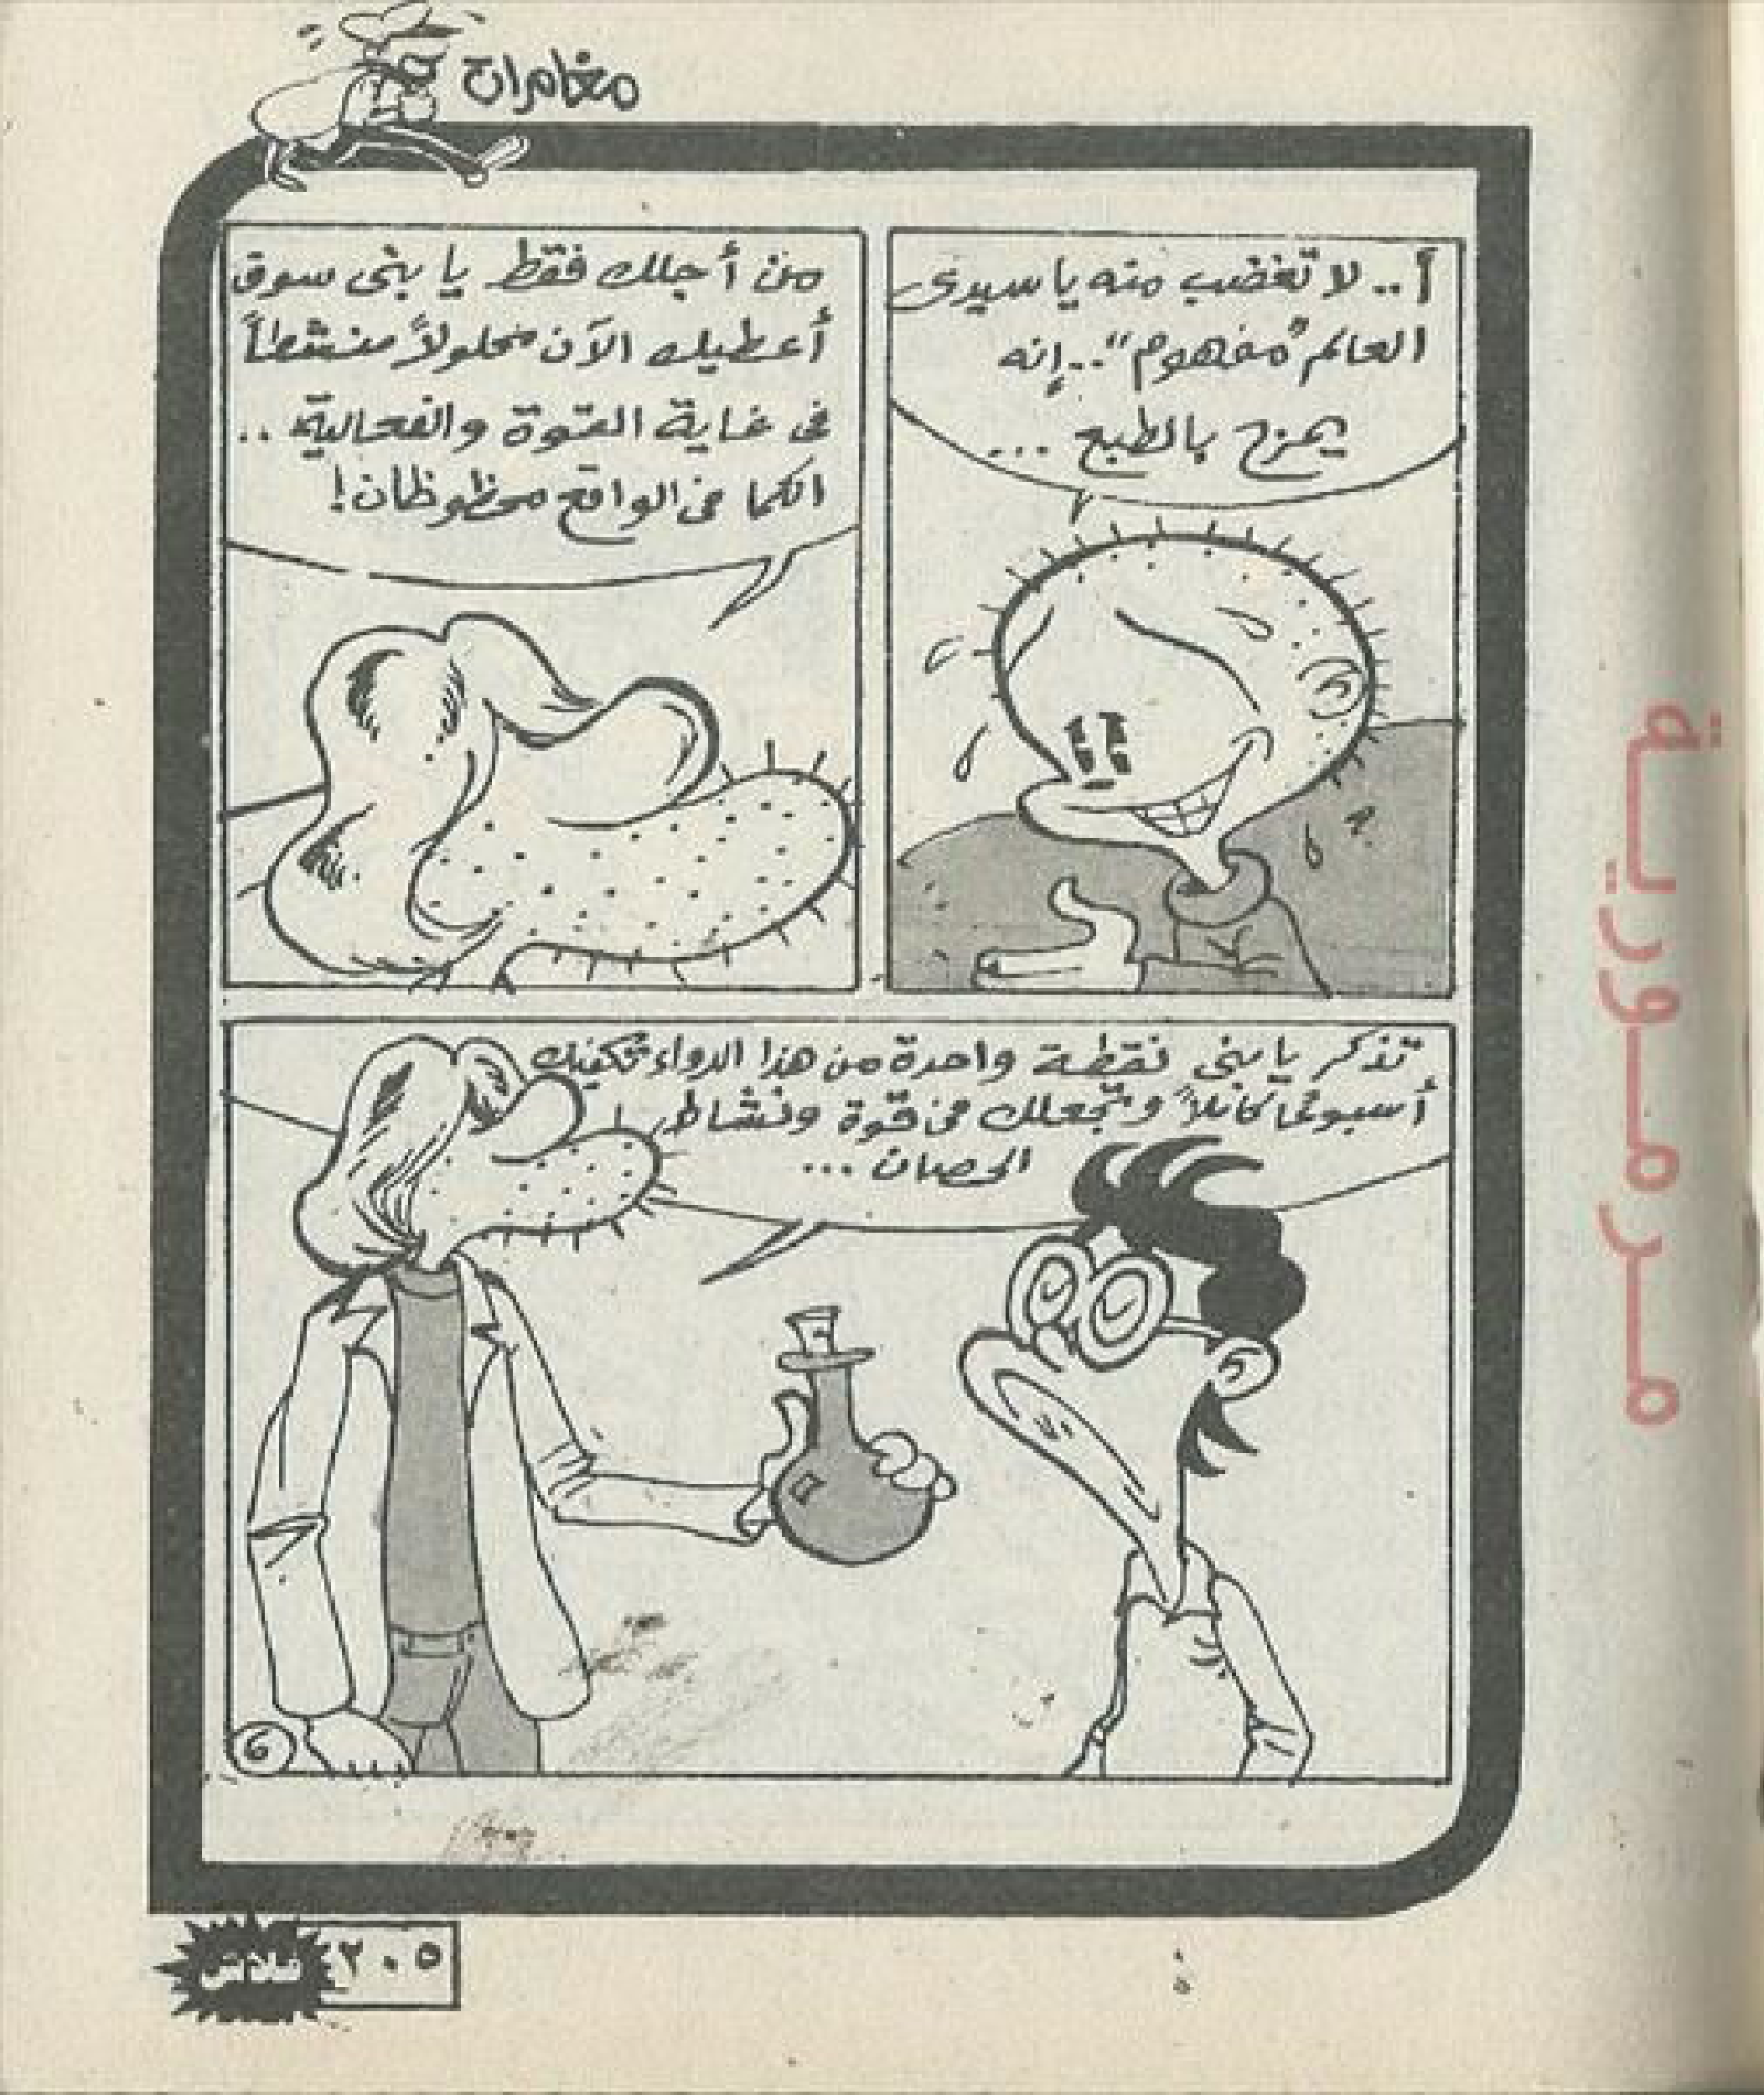 مغامرات
أ.. لا تغضب منه يا سيدى
العالم "مفهوم".. إنه
يمزح بالطبع ...
من أجلك فقط يا بنى سوق
أعطيك الآن محلولاً منشطاً
فى غاية القوة والفعالية ..
انكما فى الواقع محظوظان!
تذكر يا بنى نقطة واحدة من هذا الدواء تكفيك
أسبوعًا كاملاً وتجعلك فى قوة ونشاط
الحصان ...
6
٢٠٥
فلاش
مرمورية